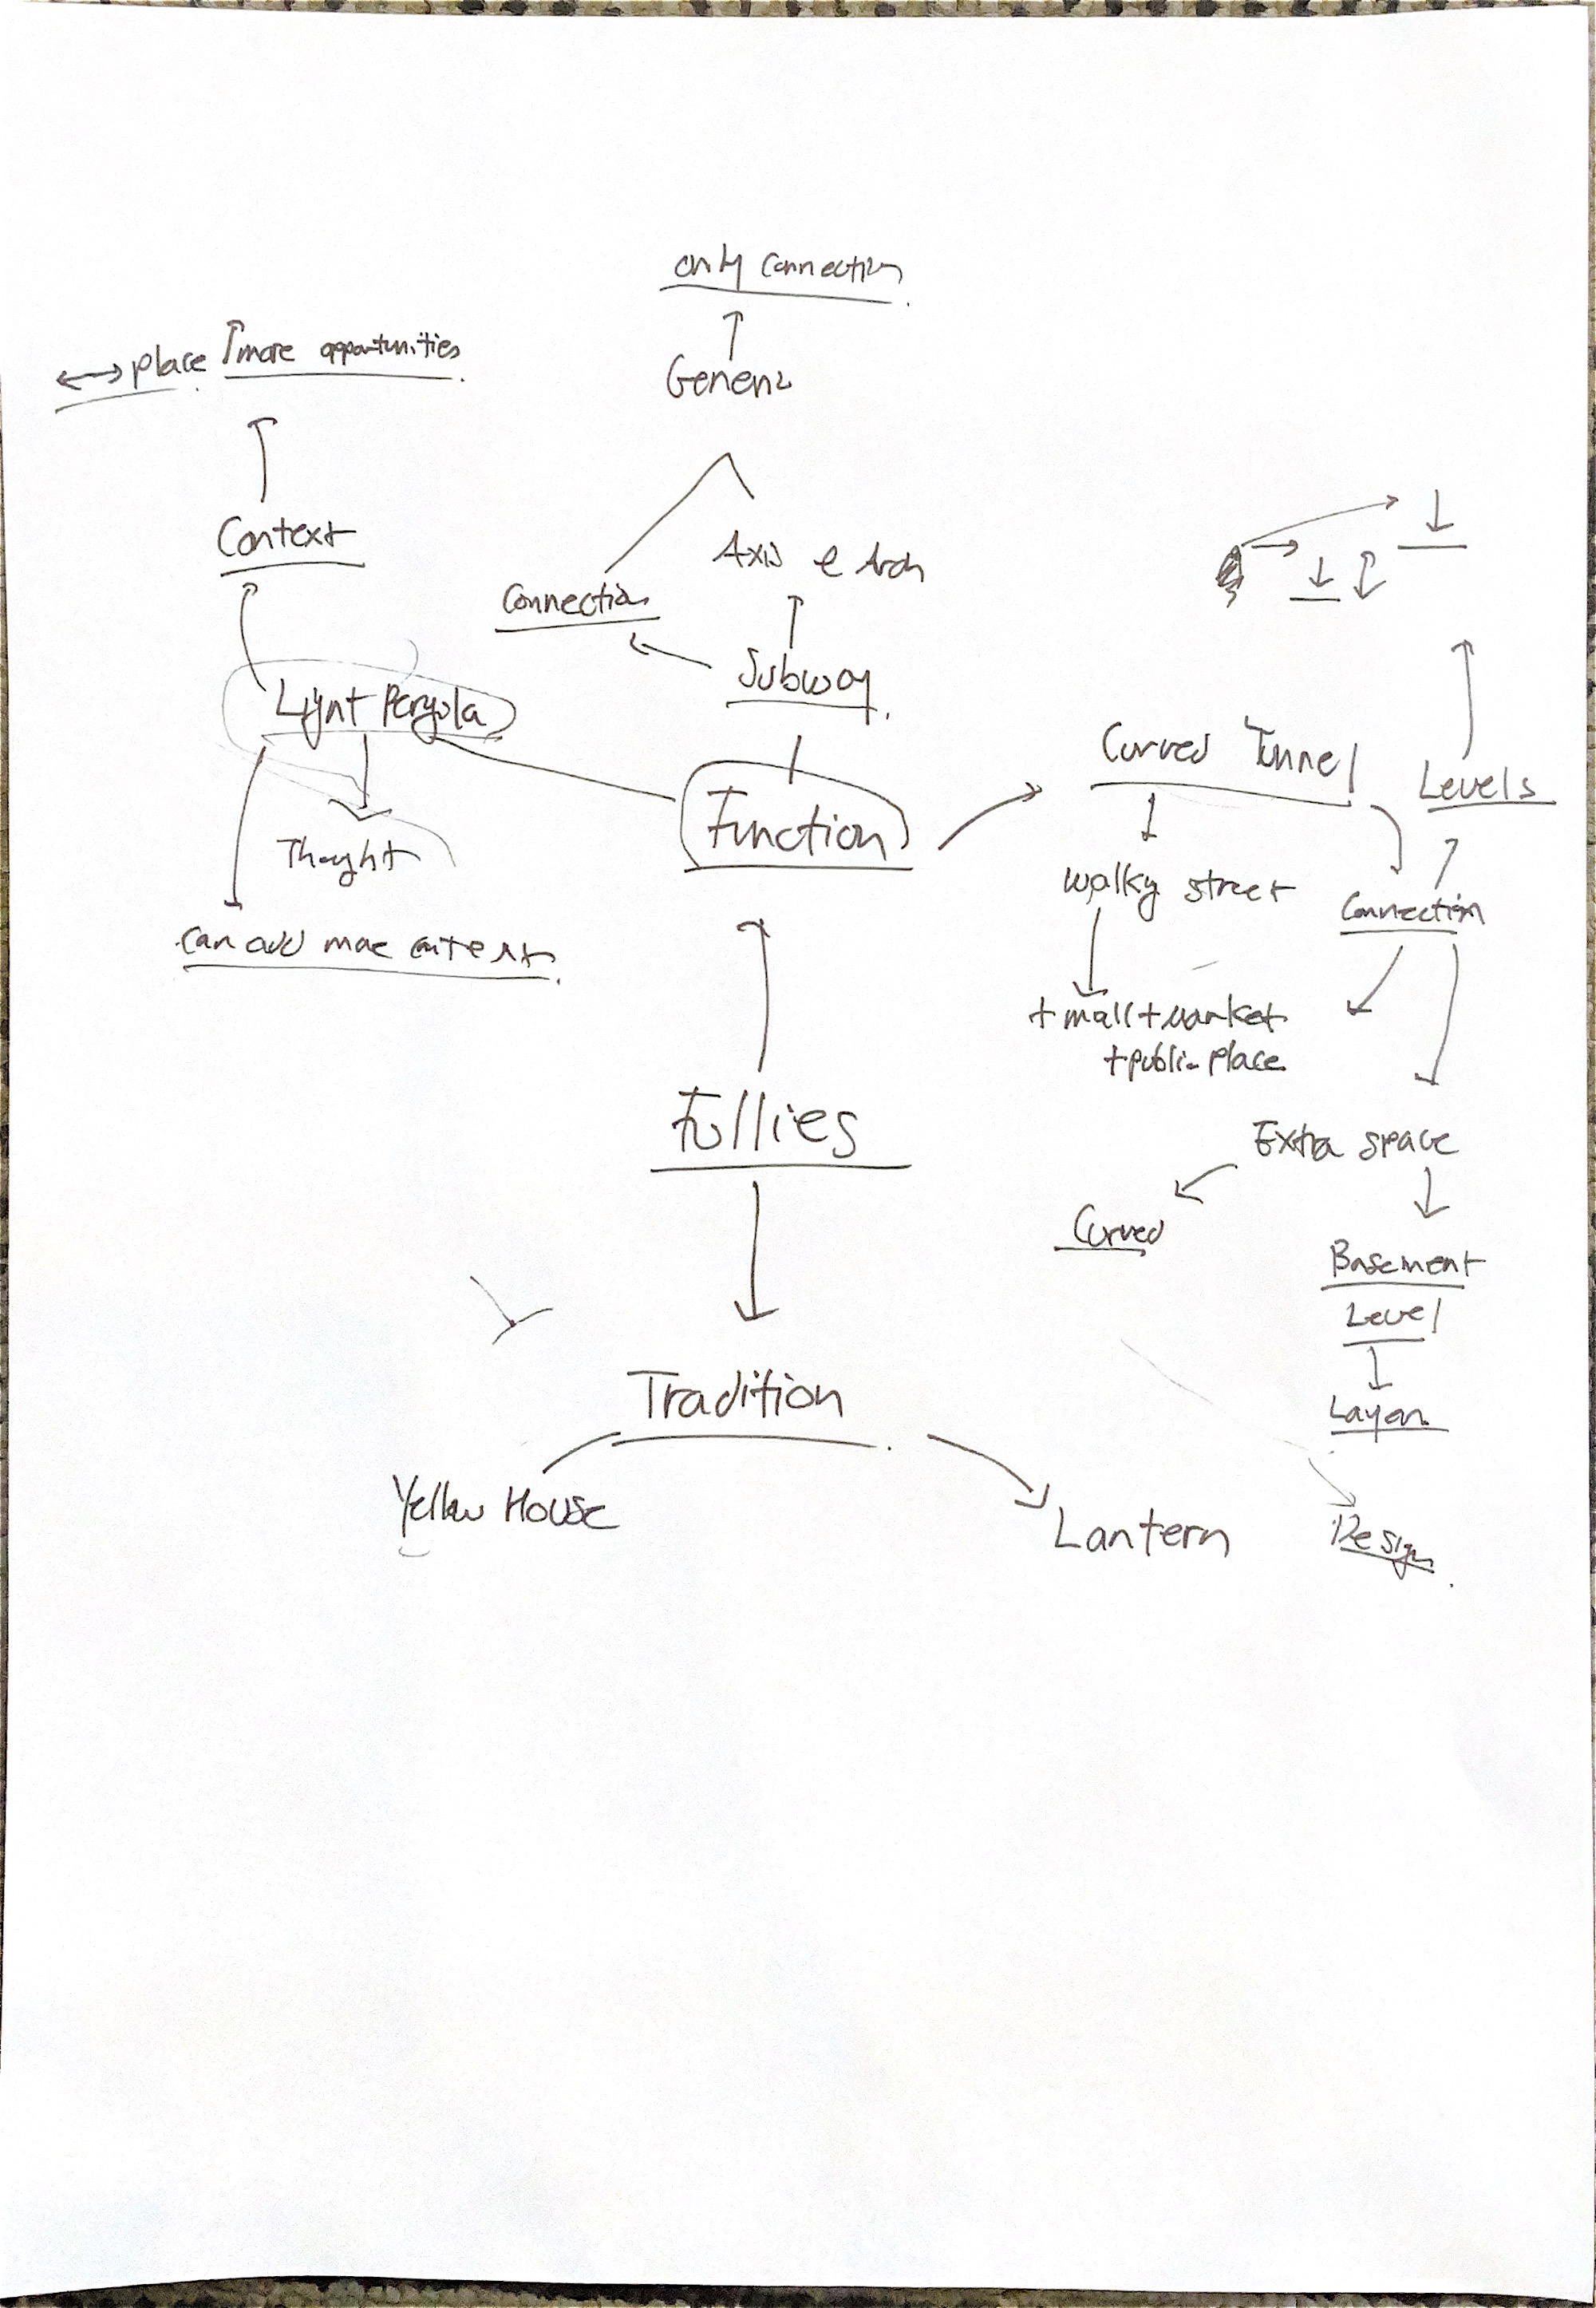 only connection
place more opportunities
Context
Axis e Arch
Connection
Subway
Light Pergola
Curved Tunnel
Levels
Function
Thought
walky street
Connection
can add more
+ mall + market
+ public place
Follies
Extra space
Curved
Basement
Level
Layer
Tradition
Yellow House
Lantern
Design